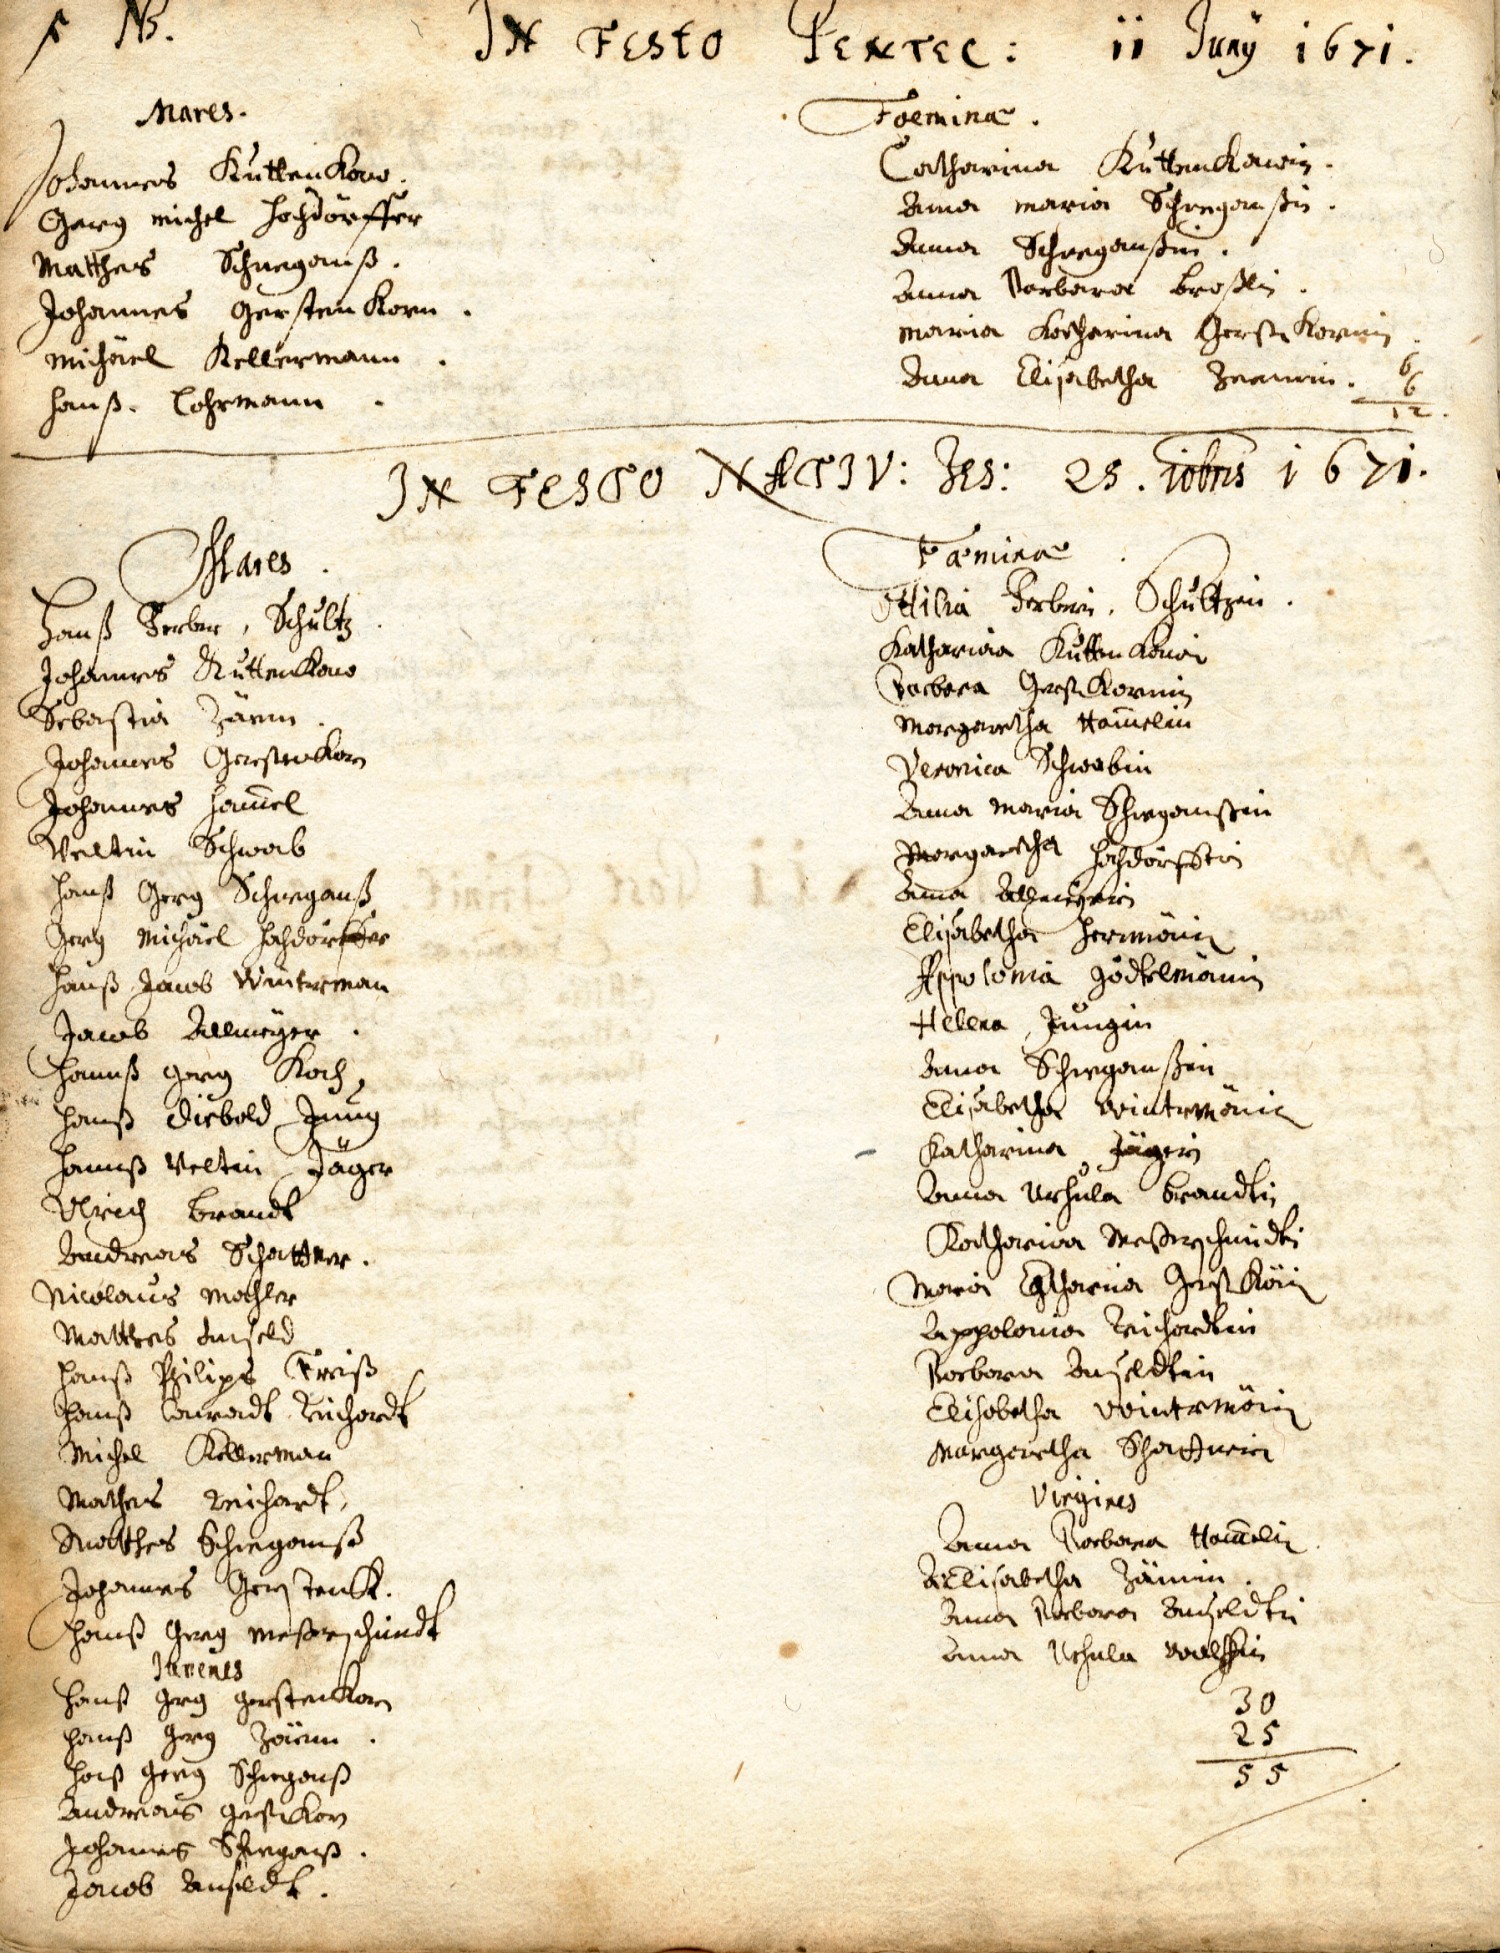 NB.
IN FESTO PENTEC: 11 Juny 1671.
Mares.
Johannes Kuttenkow.
Gerg Michel Hochdörffer
Matthes Schneganß.
Johannes Gerstenkorn.
Michäel Kellermann.
Hanß. Lohrmann.
Foeminæ.
Catharina Kuttenkowin.
Anna Maria Schneganßin.
Anna Schneganßin.
Anna Barbara
Maria Katharina Gerstkornin.
Anna Elisabetha
6
6
12.
IN FESTO NATIV: JES: 25. 10bris 1671.
Mares.
Hanß Ferber, Schultz.
Johannes Kuttenkow
Sebastia Zäunn.
Johannes Gerstenkorn
Johannes Ham̄el
Veltin Schwab
Hanß Gerg Schneganß
Gerg Michäel Hochdörffer
Hanß Jacob Winterman
Jacob Allmeÿer.
Hannß Gerg Koch,
Hanß Diebold Jung
Hannß Veltin Jäger
Ulrich Brandt
Andreas Schattner.
Nicolaus Mahler
Mattheis Anseld
Hanß Philips Freiß
Hanß Conradt Reichardt
Michel Kellerman
Matheis Reichardt,
Matthes Schneganß
Johannes Gerstenk.
Hanß Gerg Meßerschmidt
Juvenes
Hanß Gerg Gerstenkorn
Hanß Gerg Zäunn.
Hanß Gerg Schneganß
Andreas Gerstkorn
Johannes Schneganß.
Jacob Anseldt.
Fœminæ.
Ottilia Ferberin, Schultzin.
Katharina Kuttenkowin
Barbara Gerstkornin
Margaretha Ham̄elin
Veronica Schwabin
Anna Maria Schneganßin
Margaretha Hochdörfferin
Anna Allmeÿerin
Elisabetha Hermänin
Appolonia
Helena Jungin
Anna Schneganßin
Elisabetha Wintermänin
Katharina Jägerin
Anna Ursula Brandtin
Katharina Meßerschmidtin
Maria Catharina Gerstkörnin
Appolonia Reichardtin
Barbara Anseldtin
Elisabetha Wintermänin
Margaretha Schattnerin
Virgines
Anna Barbara Ham̄elin.
Elisabetha Zäunin.
Anna Barbara Anseldtin
Anna Ursula Wolffin
30
25
55